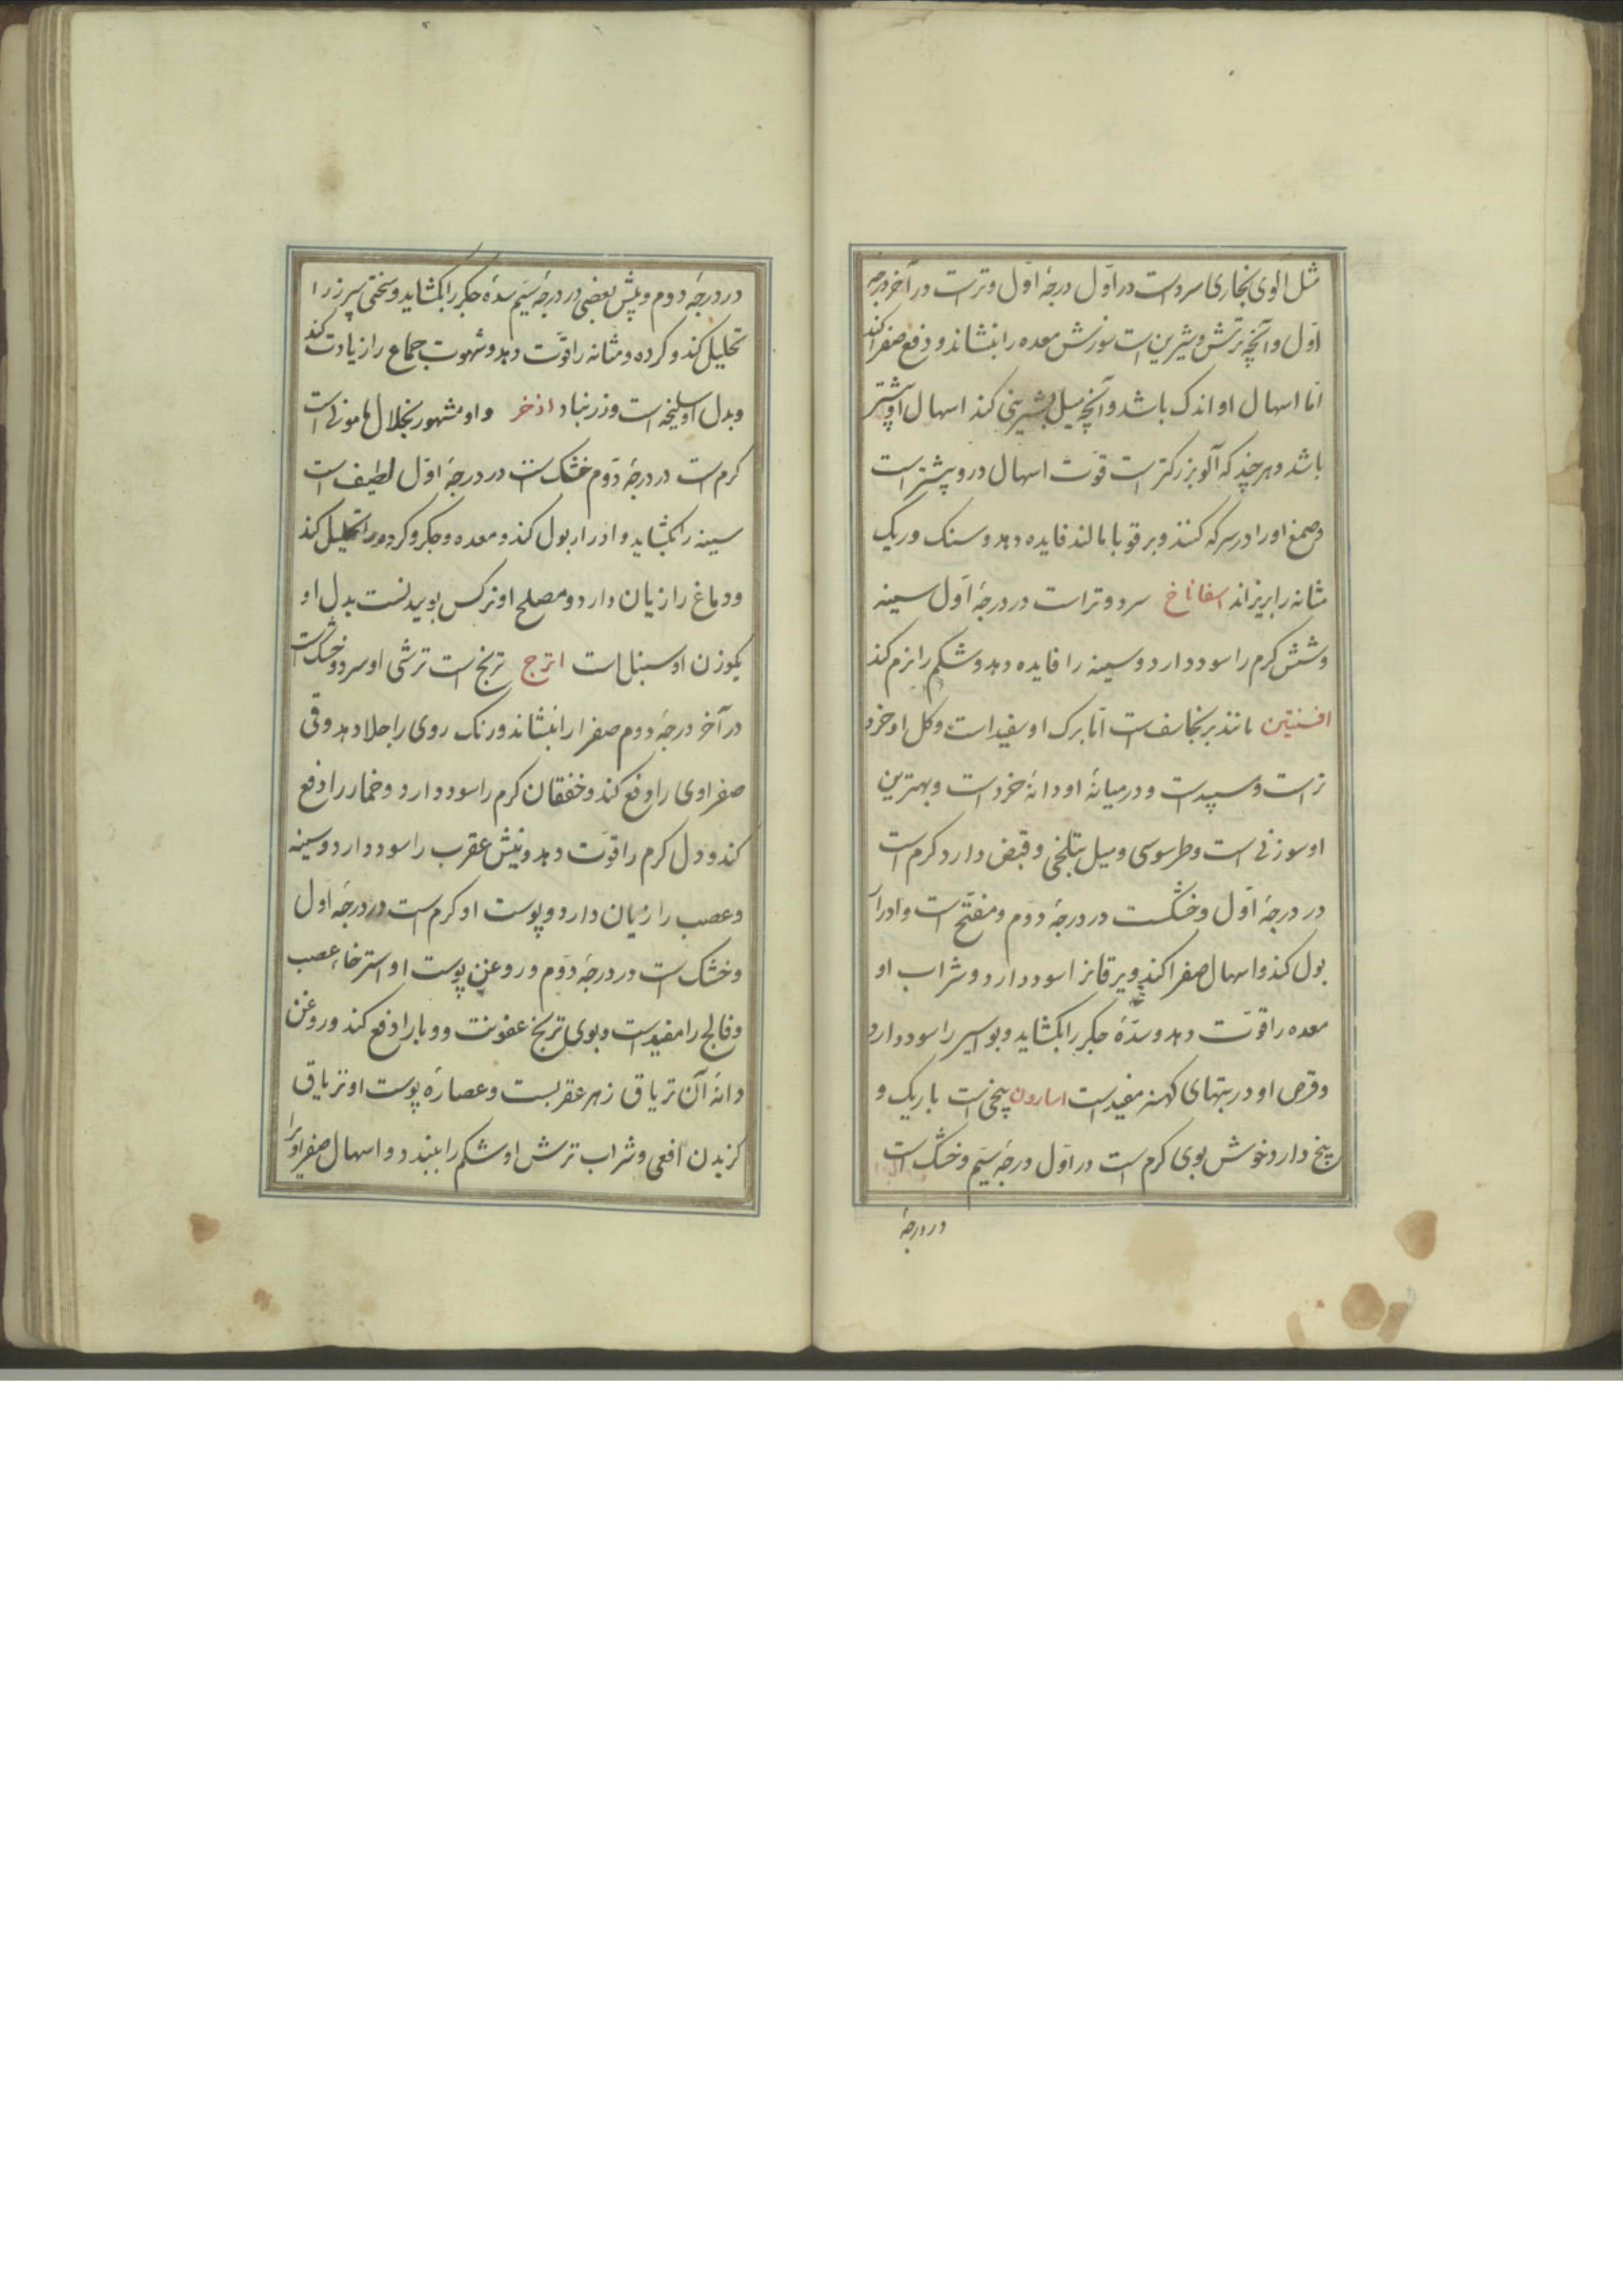 مثل آلوی بخاری سردست در اوّل درجهٔ اوّل و ترست در آخر درجه
اوّل و آنچه ترش و شیرین است سوزش معده را بنشاند و دفع صفرا کند
امّا اسهال او اندک باشد و آنچه میل بشیرینی کند اسهال او بیشتر
باشد و هر چند که آلو بزرکتر است قوّت اسهال درو بیشتر است
و صمغ او را در سرکه کنند و بر قوبا مالند فایده دهد و سنک و ریک
مثانه را بریزاند اسفاناخ سرد و تر است در درجهٔ اوّل سینه
و شش کرم را سود دارد و سینه را فایده دهد و شکم را نرم کند
افسنتین مانند برنجاسف است امّا برک او سفید است و کل او خرد
تر است و سپیدست و در میانهٔ او دانهٔ خردست و بهترین
او سوزنی است و طرسوسی و میل بتلخی و قبض دارد کرم است
در درجهٔ اوّل و خشکست در درجهٔ دوم و مفتّح است و ادرار
بول کند و اسهال صفرا کند و یرقانرا سود دارد و شراب او
معده را قوّت دهد و سدّهٔ جکر را بکشاید و بواسیر را سود دارد
و قرص او در تبهای کهنه مفیدست اسارون بیخی است باریک و
بیخ دارد خوش بوی کرم است در اوّل درجهٔ سیّم و خشک است
در درجهٔ
در درجهٔ دوم و پیش بعضی در درجهٔ سیّم سدهٔ جکر را بکشاید و سختی سپرز را
تحلیل کند و کرده و مثانه را قوّت دهد و شهوت جماع را زیادت کند
و بدل او سلیخه است و زرنباد اذخر و او مشهور بخلال مامونی است
کرم است در درجهٔ دوّم خشک است در درجهٔ اوّل لطیف است
سینه را بکشاید و ادرار بول کند و معده و جکر و کرده را تحلیل کند
و دماغ را زیان دارد و مصلح او نرکس بوییدنست بدل او
بکوزن او سنبل است اترج ترنج است ترشی او سرد و خشک است
در آخر درجهٔ دوم صفرا را بنشاند و رنک روی را جلا دهد و قی
صفراوی را دفع کند و خفقان کرم را سود دارد و خمار را دفع
کند و دل کرم را قوّت دهد و نیش عقرب را سود دارد و سینه
و عصب را زیان دارد و پوست او کرم است در درجهٔ اول
و خشک است در درجهٔ دوّم و روغن پوست او استرخاء عصب
و فالج را مفیدست و بوی ترنج عفونت و وبا را دفع کند و روغن
دانهٔ آن تریاق زهر عقربست و عصارهٔ پوست او تریاق
کزیدن افعی و شراب ترش او شکم را ببندد و اسهال صفراوی را